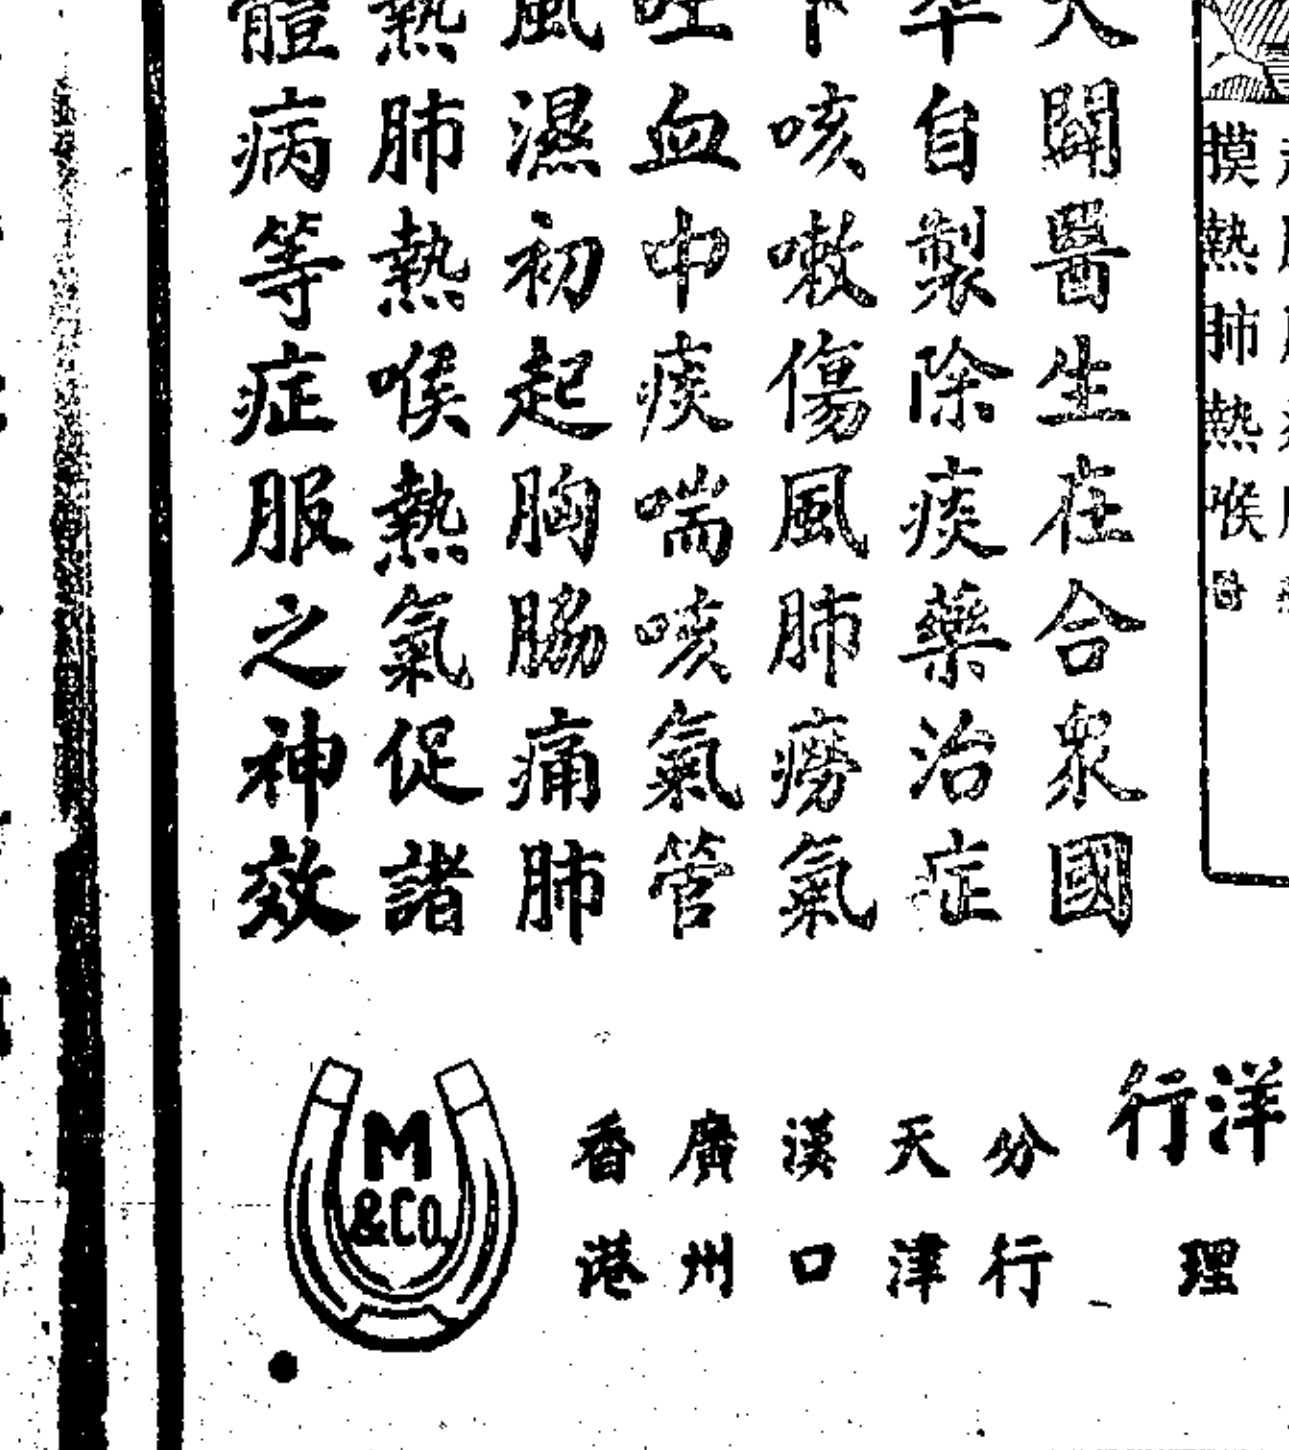 開醫生在合衆國
自製除痰藥治症
咳嗽傷風肺癆氣
血中痰喘咳氣管
風濕初起胸脇痛肺
熱肺熱喉熱氣促諸
體病等症服之神效
膜熱肺熱喉
洋行
理
分行
天津
漢口
廣州
香港
M
&CO.